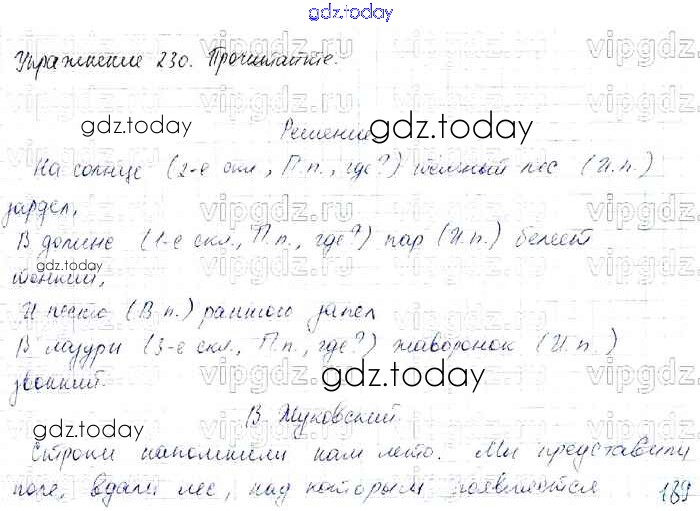 gdz.today
Упражнение 230. Прочитайте.
gdz.today
Решение
gdz.today
На солнце (2-е скл., П.п., где?) тёмный лес (И.п.)
зардел,
В долине (1-е скл., П.п., где?) пар (И.п.) белеет
gdz.today
тонкий,
И песню (В.п.) раннюю запел
В лазури (3-е скл., П.п., где?) жаворонок (И.п.)
звонкий.
gdz.today
В. Жуковский
gdz.today
Строки напомнили нам лето. Мы представили
поле, вдали лес, над которым появляется
189
vipgdz.ru